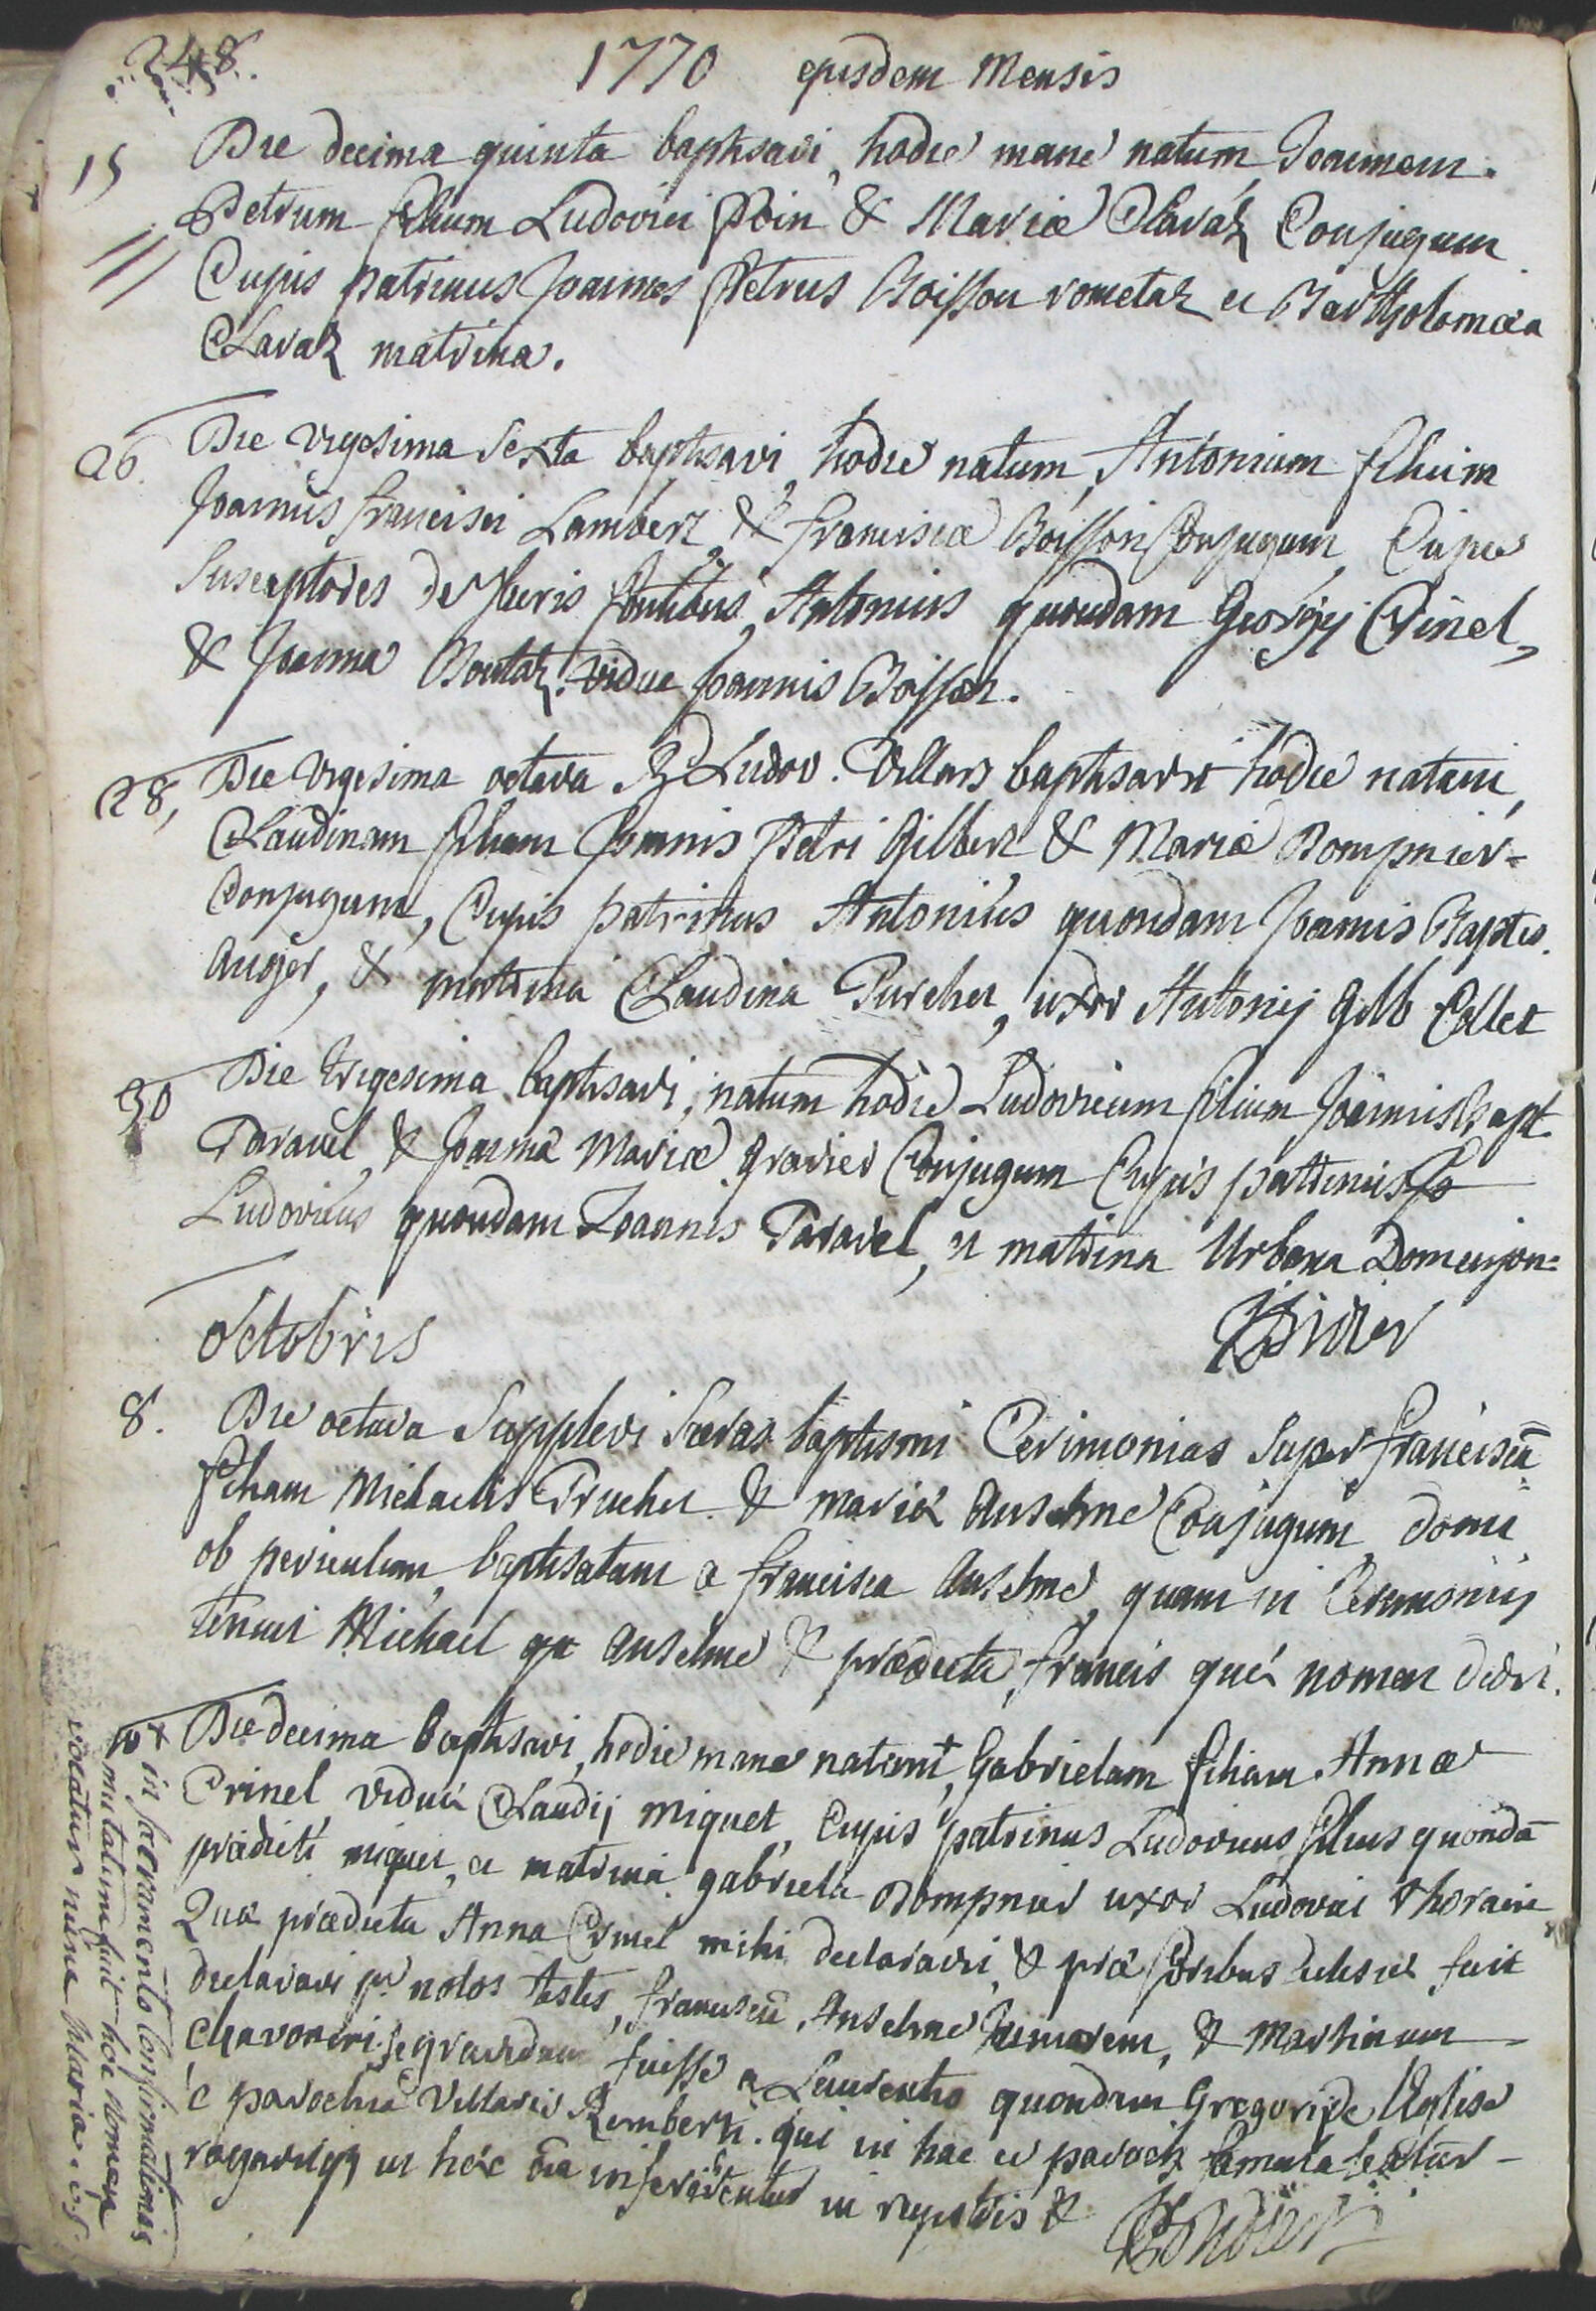 248.
1770 ejusdem Mensis
15 Die decima quinta baptisavi, hodie mane natum, Joannem.
Petrum filium Ludovici Poin & Mariæ Clavaz Conjugum
Cujus patrinus Joannes Petrus Boisson rometaz et Bartholomæa
Clavaz matrina.
26. Die vigesima Sexta baptisavi, hodie natum, Antonium filium
Joannis francisci Lambert, & franciscæ Boisson Conjugum, Cujus
Susceptores de Sacris fontibus, Antonius quondam Georgij Crinel,
& Joanna Boutaz vidua Joannis Boisson.
28, Die vigesima octava Rd Ludov. Villars baptisavit hodie natam,
Claudinam filiam Joannis Petri Gilbert & Mariæ Dompnier-
Conjugum, Cujus patrinus Antonius quondam Joannis Baptis.
auger, & matrina Claudina Turcher, uxor Antonij Gilb Collet
30 Die trigesima baptisavi, natum hodie Ludovicum filium Joannis Bapt.
Taravel, & Joannæ Mariæ gravier Conjugum Cujus patrinus Jo
Ludovicus quondam Joannis Taravel, et matrina Urbana Domenjon=
octobris
8. Die octava Supplevi Sacras baptismi Cerimonias Super franciscā
filiam Michaelis Trucher & mariæ anselme Conjugum, domi
ob periculum, baptisatam a francisca anselme, quam in Cerimoniis
tenuit Michael qu anselme & prædicta francis quæ nomen dedit.
10 Die decima baptisavi, hodie mane natam+, Gabrielam filiam Annæ
Crinel viduæ Claudij miquet, Cujus patrinus Ludovicus filius quondā
prædicti miquet, et matrina gabriela Dompnier uxor Ludovici thoraire
Quæ prædicta Anna Crinel mihi declaravit, & præ foribus ecclesiæ fecit
declarari per notos testes, franciscū Anselme juniorem, & Martinum
Chavoneri se gravidam fuisse a Laurentio quondam Gregorij de Uglise
è parochia Villaris Remberti. qui in hac et paroch famula
rogavitque ut hæc oīa in registris &
+ in sacramento Confirmationis
mutatum fuit hoc nomen
vocatur nunc Maria.